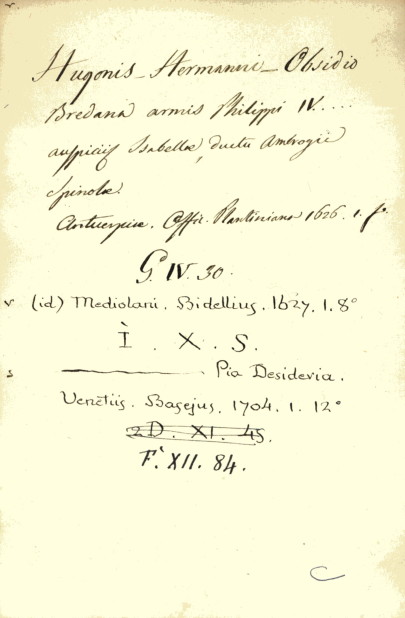 Hugonis - Hermanni - Obsidio
Bredana armis Philippi IV. ....
auspiciis Isabellæ, ductu Ambrogii
Spinolæ.
Antuerpiæ. Offic. Plantiniana 1626. 1. f.
G. IV. 30.
v (id) Mediolani. Bidellius. 1627. 1. 8°
I. X. S.
s ——— Pia Desideria.
Venetiis. Basejus. 1704. 1. 12°
2D. XI. 45.
F. XII. 84.
C